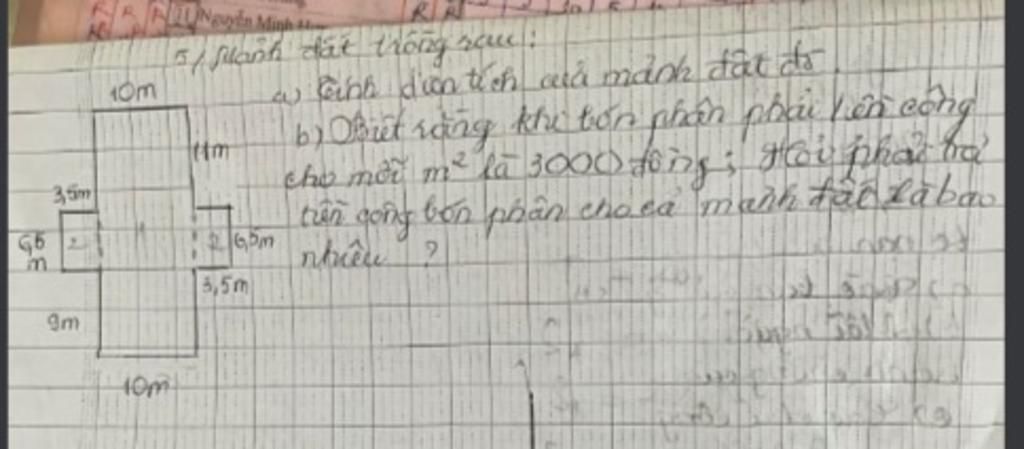 Nguyễn Minh
5/ Mảnh đất trống sau:
a) Tính diện tích của mảnh đất đó
b) Biết rằng khi bón phân phải lên công
cho mỗi m² là 3000 đồng; Hỏi phải trả
tiền công bón phân cho cả mảnh đất là bao
nhiêu ?
10m
11m
3,5m
6,5
m
2
1
2
6,5m
3,5m
9m
10m